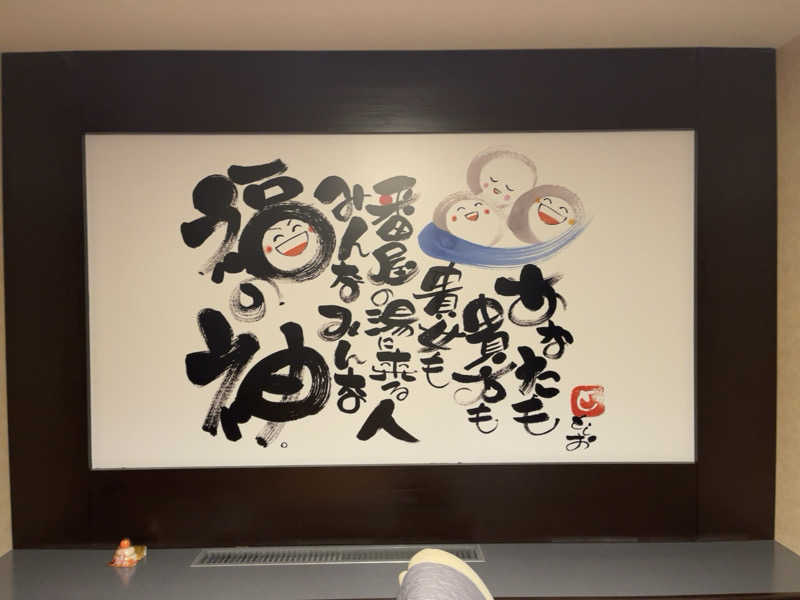 あなたも
貴方も
貴女も
番屋の湯に来る人
みんなみんな
福の
神。
としお